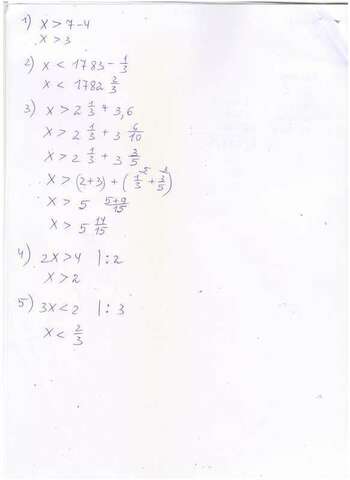 1) x > 7-4
x > 3
2) x < 1783 - 1/3
x < 1782 2/3
3) x > 2 1/3 + 3,6
x > 2 1/3 + 3 6/10
x > 2 1/3 + 3 3/5
x > (2+3) + (1/3 + 3/5)
x > 5 5+9/15
x > 5 14/15
4) 2x > 4 |:2
x > 2
5) 3x < 2 |:3
x < 2/3